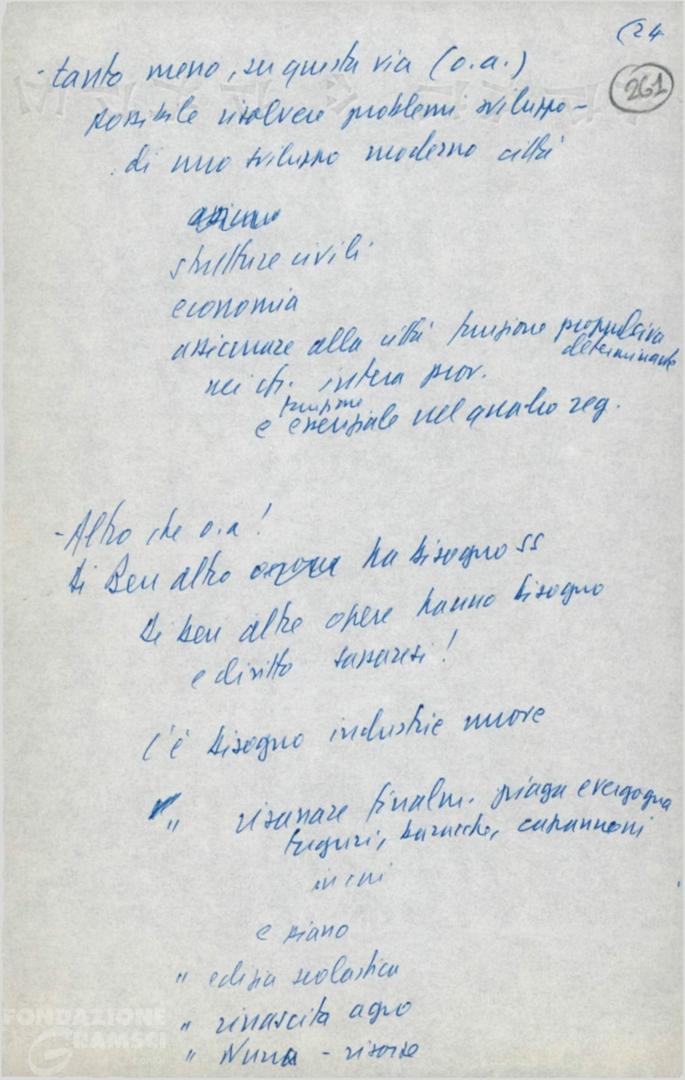 (24
261
- tanto meno, su questa via (o.a.)
possibile risolvere problemi sviluppo -
di uno sviluppo moderno città
strutture civili
economia
assicurare alla città funzione propulsiva
determinante
nei cfr. intera prov.
funzione
e essenziale nel quadro reg.
- Altro che o.a!
Di ben altro ha bisogno SS
Di ben altre opere hanno bisogno
e diritto sassaresi!
C'è bisogno industrie nuove
" risanare finalm. piaga e vergogna
tuguri, baracche, capannoni
in cui
e piano
" edizia scolastica
" rinascita agro
" Nurra - risorse
FONDAZIONE
GRAMSCI